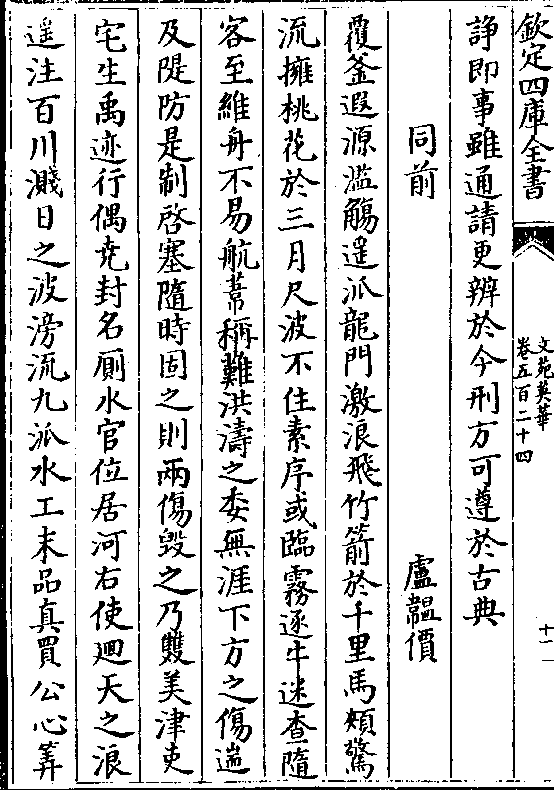 欽定四庫全書
文苑英華
卷五百二十四
十一
諍即事雖通請更辨於今刑方可遵於古典
同前
盧韞價
覆釜遐源濫觴遥派龍門激浪飛竹箭於千里馬頰驚
流擁桃花於三月尺波不住素序或臨霧逐牛迷查隨
客至維舟不易航葦稱難洪濤之委無涯下方之傷遄
及隄防是制啓塞隨時固之則兩傷毀之乃雙美津吏
宅生禹迹行偶尭封名厠水官位居河右使迴天之浪
遥注百川濺日之波滂流九派水工末品真買公心筭